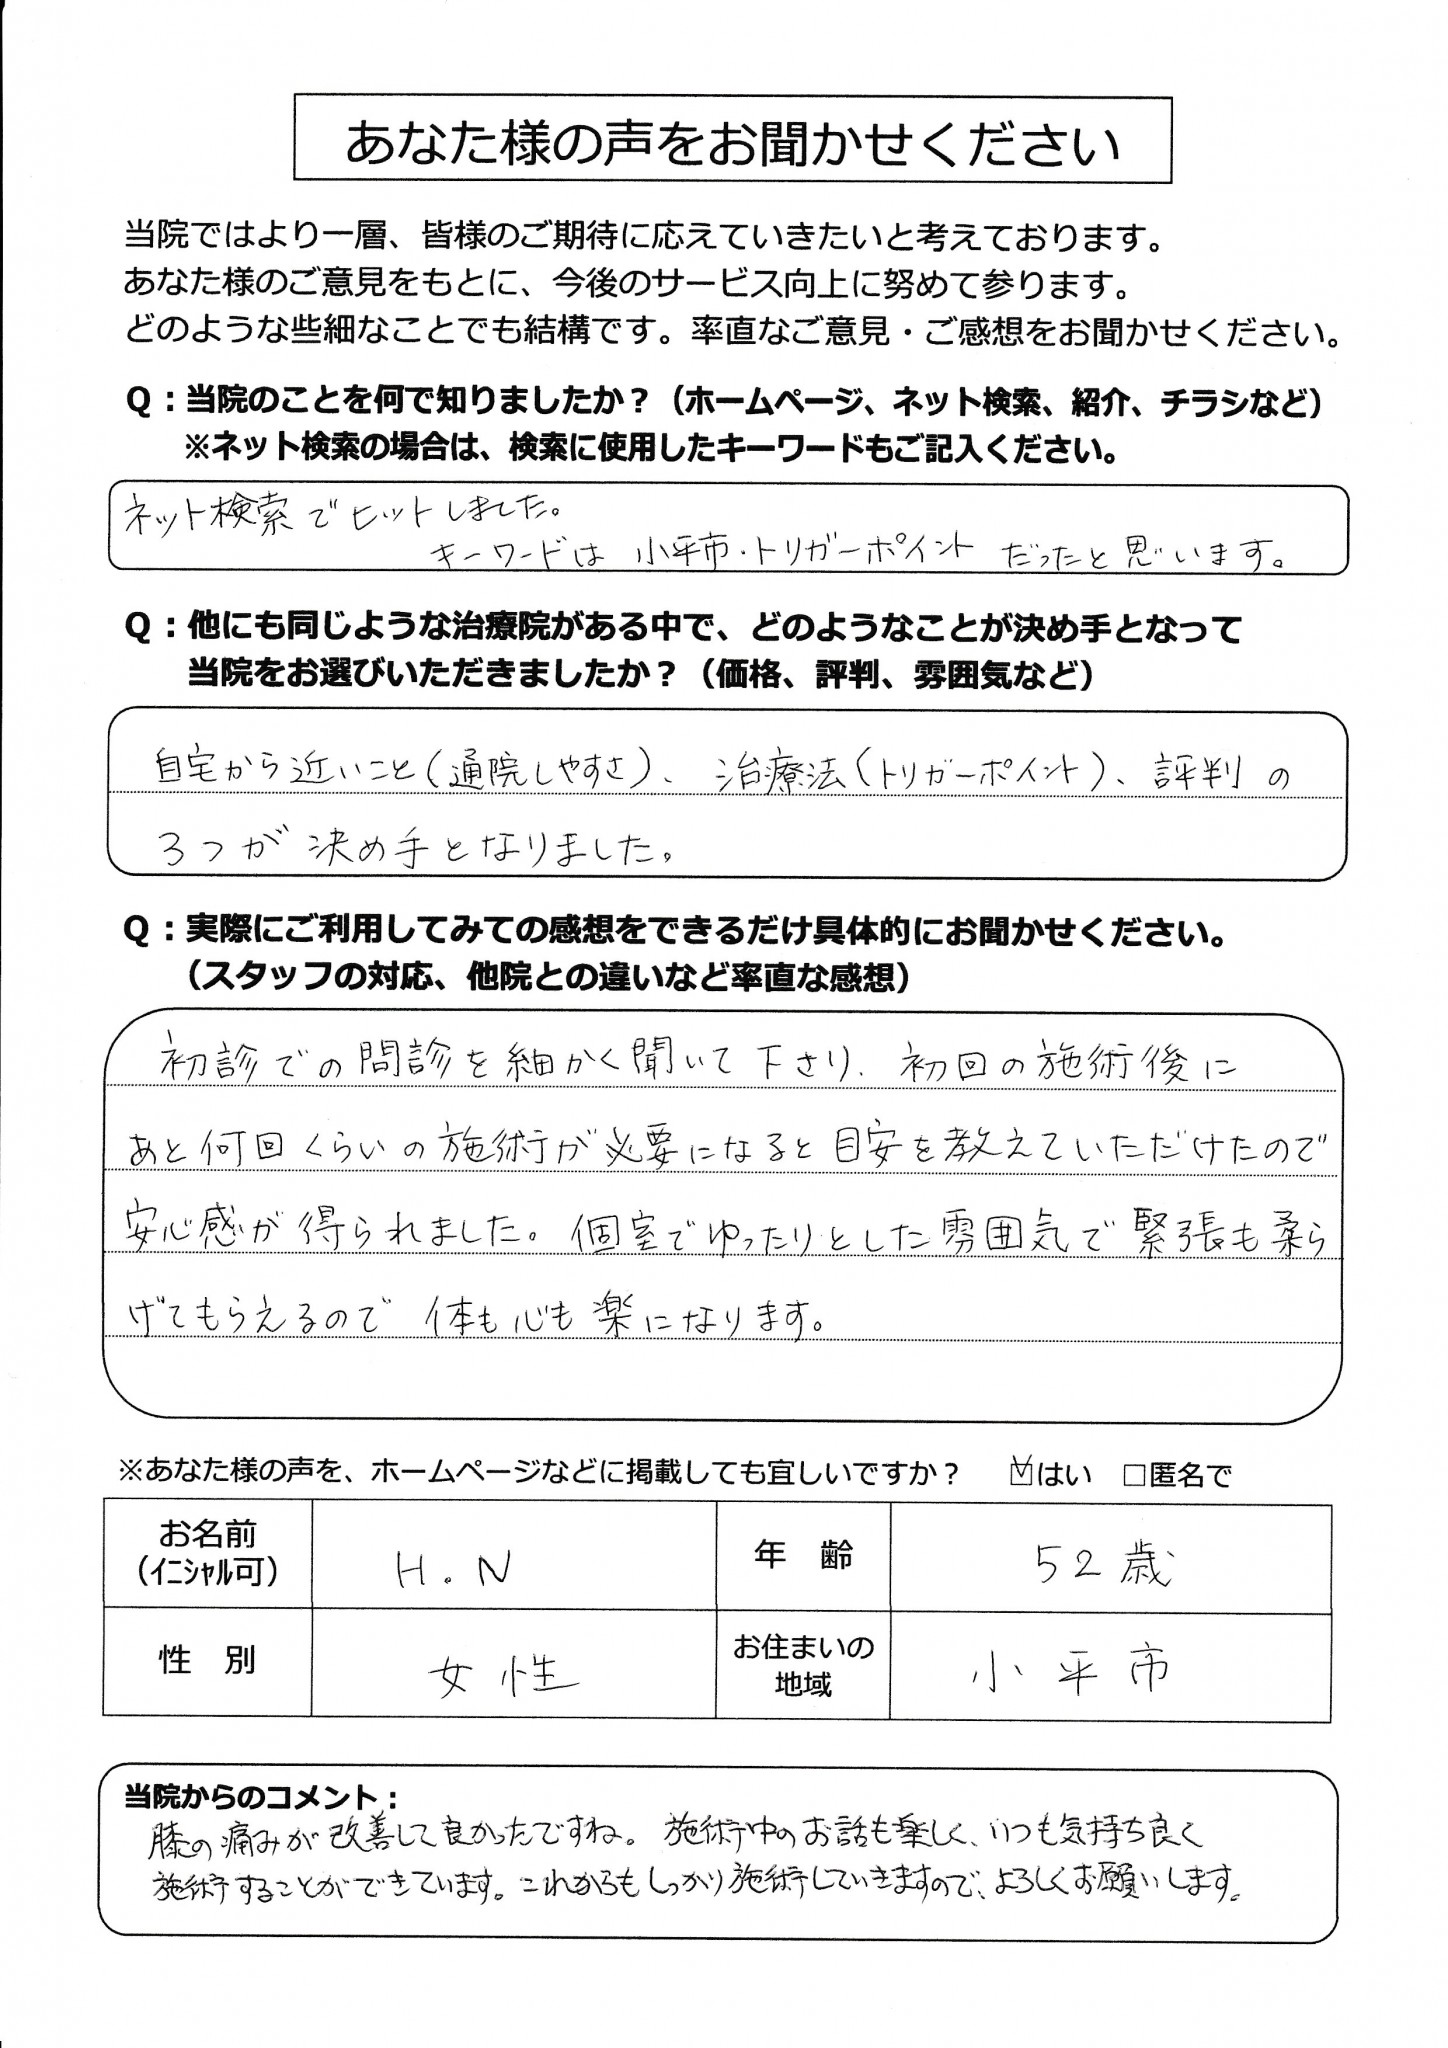 あなた様の声をお聞かせください
当院ではより一層、皆様のご期待に応えていきたいと考えております。
あなた様のご意見をもとに、今後のサービス向上に努めて参ります。
どのような些細なことでも結構です。率直なご意見・ご感想をお聞かせください。
Q：当院のことを何で知りましたか？（ホームページ、ネット検索、紹介、チラシなど）
※ネット検索の場合は、検索に使用したキーワードもご記入ください。
ネット検索でヒットしました。
キーワードは 小平市・トリガーポイント だったと思います。
Q：他にも同じような治療院がある中で、どのようなことが決め手となって
当院をお選びいただきましたか？（価格、評判、雰囲気など）
自宅から近いこと（通院しやすさ）、治療法（トリガーポイント）、評判の
3つが決め手となりました。
Q：実際にご利用してみての感想をできるだけ具体的にお聞かせください。
（スタッフの対応、他院との違いなど率直な感想）
初診での問診を細かく聞いて下さり、初回の施術後に
あと何回くらいの施術が必要になると目安を教えていただけたので
安心感が得られました。個室でゆったりとした雰囲気で緊張も柔ら
げてもらえるので 体も心も楽になります。
※あなた様の声を、ホームページなどに掲載しても宜しいですか？ ☑はい □匿名で
お名前 H.N 年 齢 52歳
（ｲﾆｼｬﾙ可）
性 別 女性 お住まいの 小平市
地域
当院からのコメント：
膝の痛みが改善して良かったですね。施術中のお話も楽しく、いつも気持ち良く
施術することができています。これからもしっかり施術していきますので、よろしくお願いします。